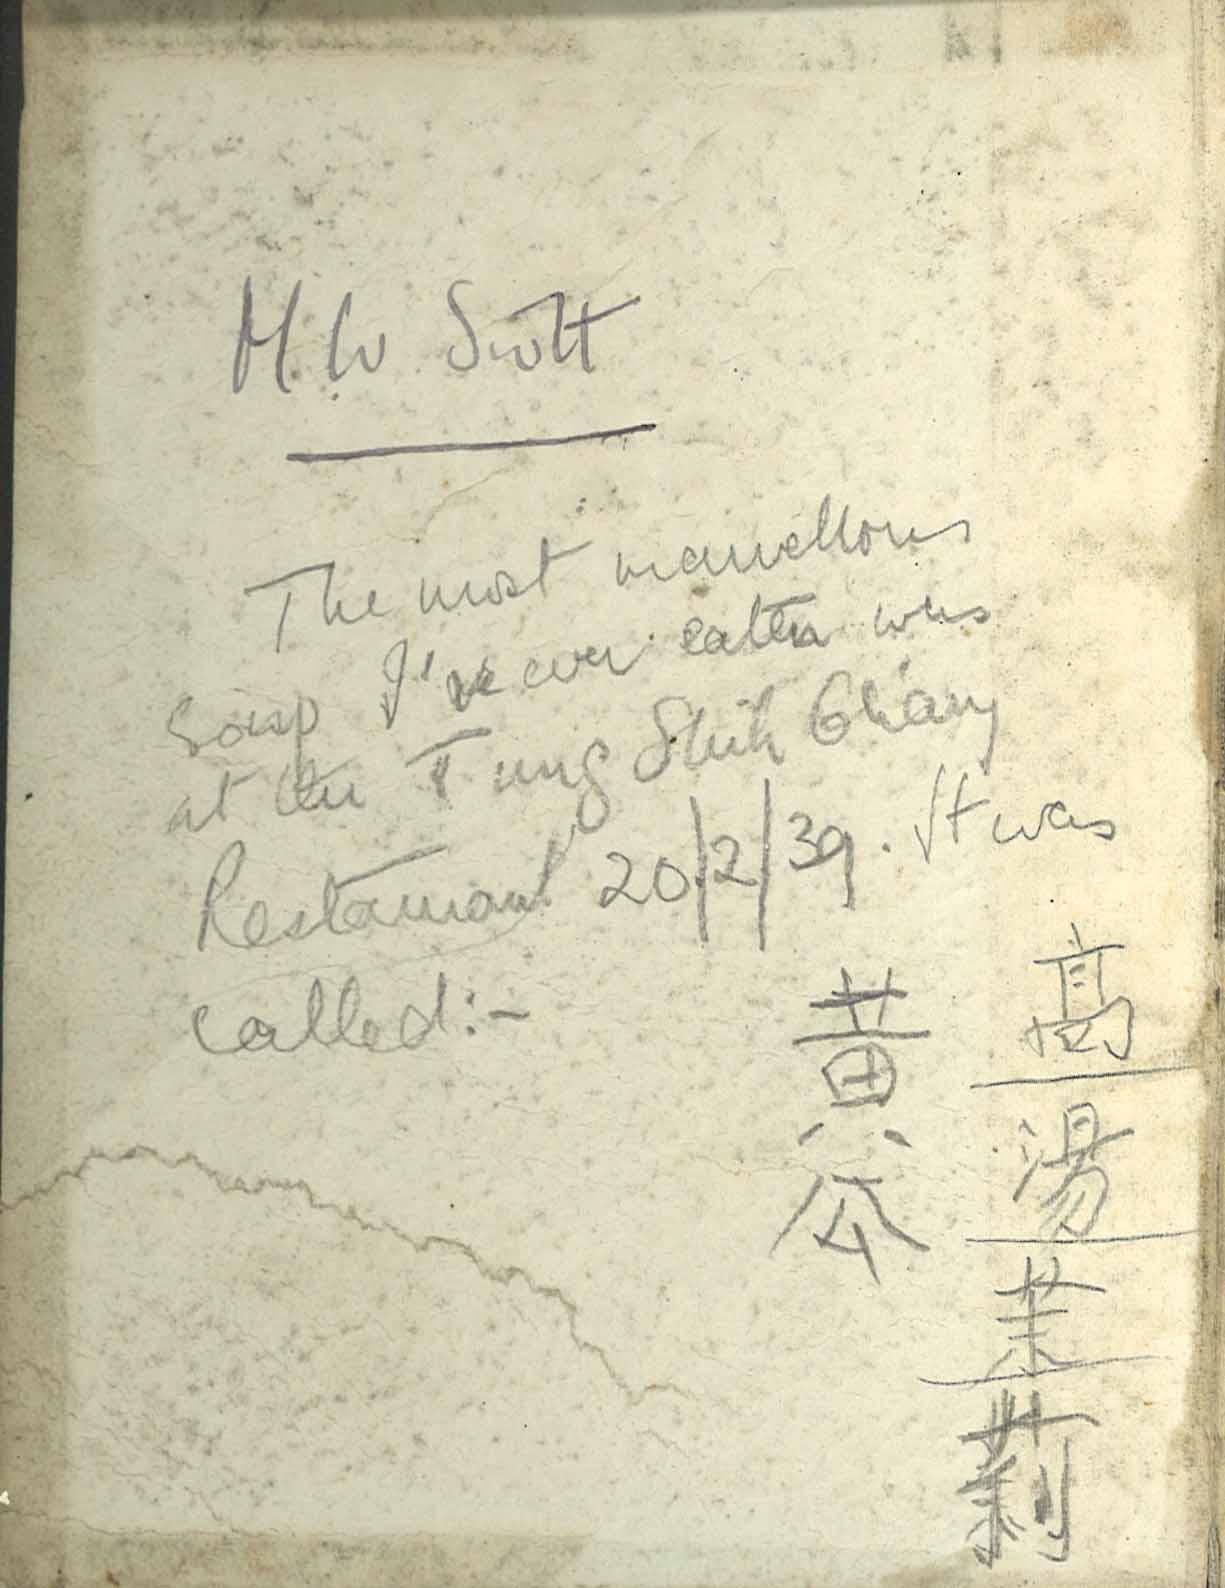 M. W Scott
The most marvellous
soup I've ever eaten was
at the Tung Shih Chang
Restaurant 20/2/39. It was
called:-
高湯茉莉
黄瓜